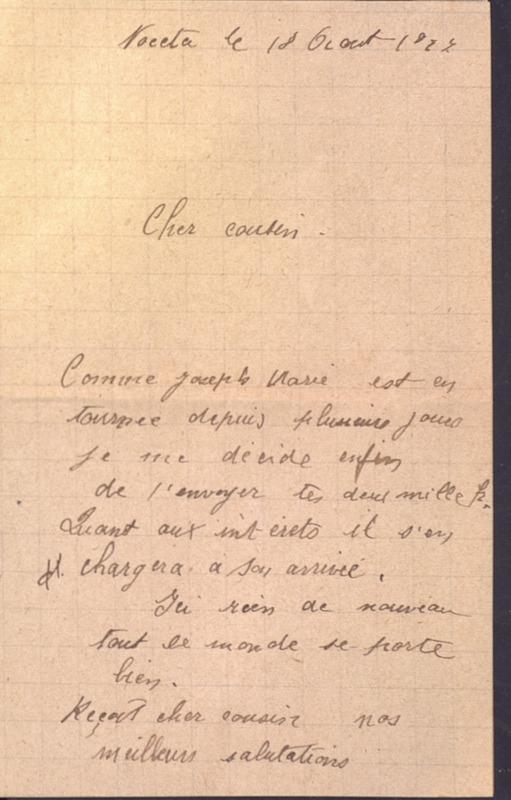 Noceta le 18 Aout
Cher cousin.
Comme Joseph Marie est en
tournee depuis plusieurs jours
je me décide enfin
de t'envoyer tes deux mille fr.
Quant aux intérêts il s'en
chargera à son arrivée.
Ici rien de nouveau
tout le monde se porte
bien.
Reçoit cher cousin nos
meilleurs salutations